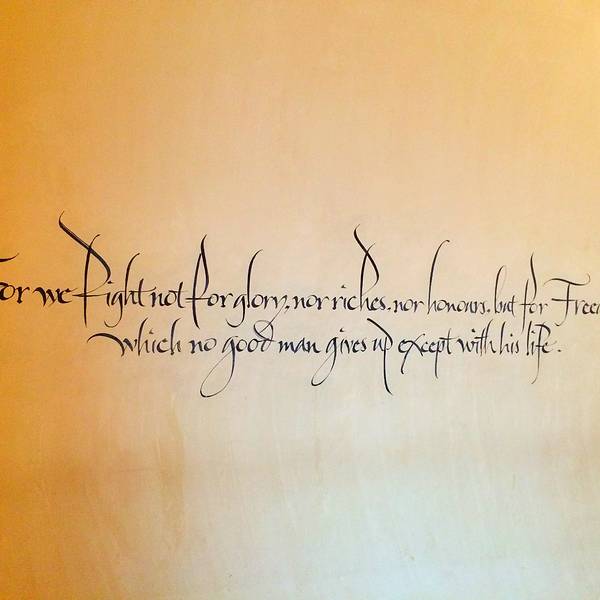 For we Fight not for glory, nor riches, nor honours, but for Free
which no good man gives up except with his life.